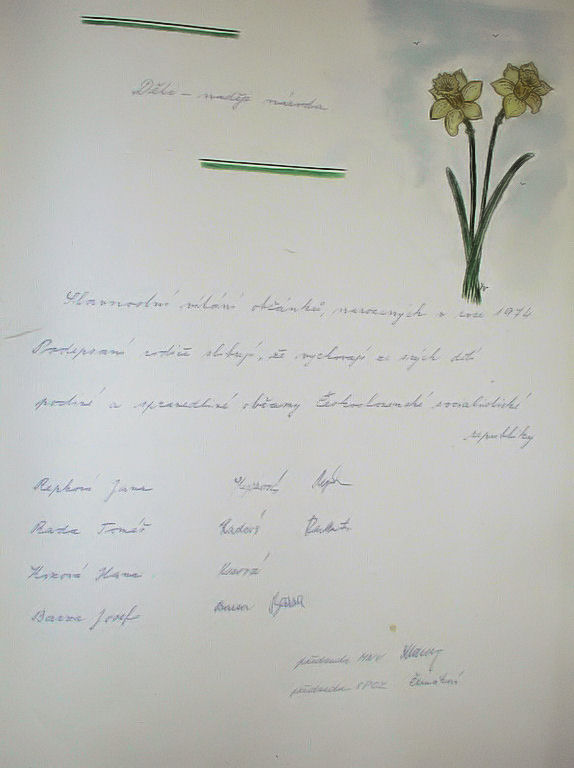 Děti – naděje národa
Slavnostní vítání občánků, narozených v roce 1974
Podepsaní rodiče slibují, že vychovají ze svých dětí
poctivé a spravedlivé občany Československé socialistické
republiky
Repková Jana
Rada Tomáš Radová
Kosová Hana Kosová
Barxa Josef
předseda MNV
předseda SPOZ